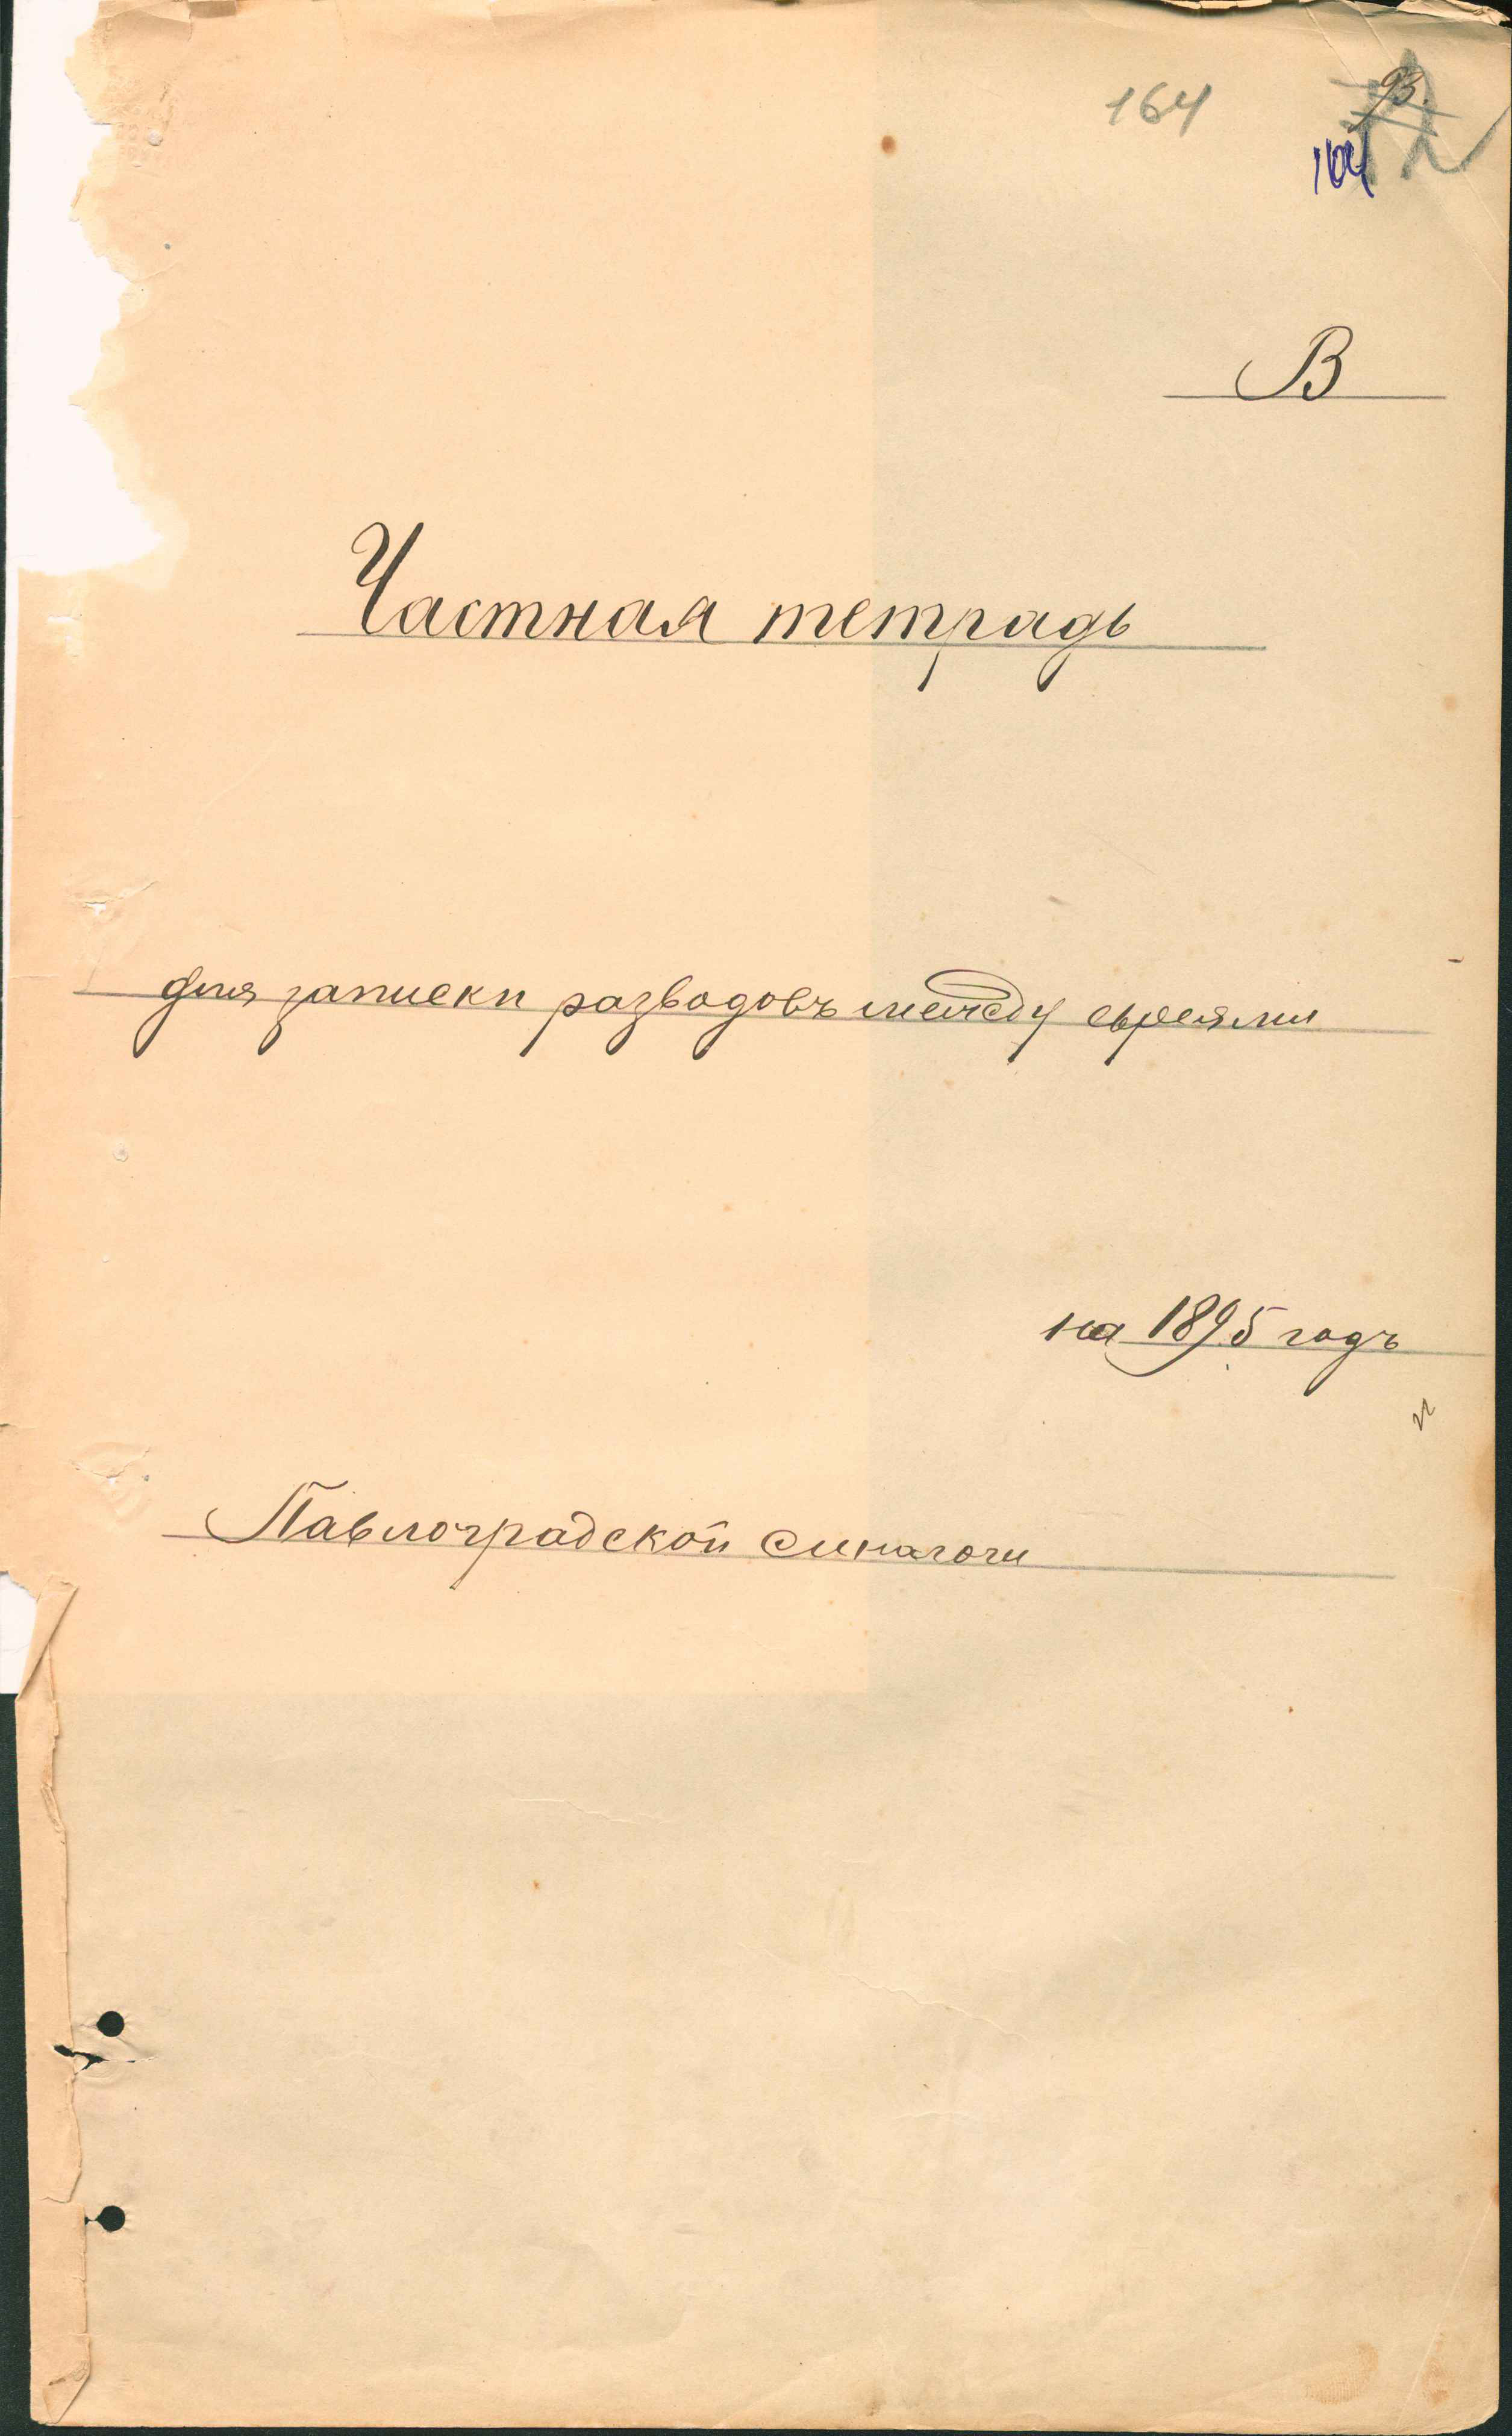 164 93.
104
В
Частная тетрадь
для записки разводовъ между евреями
на 1895 годъ
Павлоградской синагоги